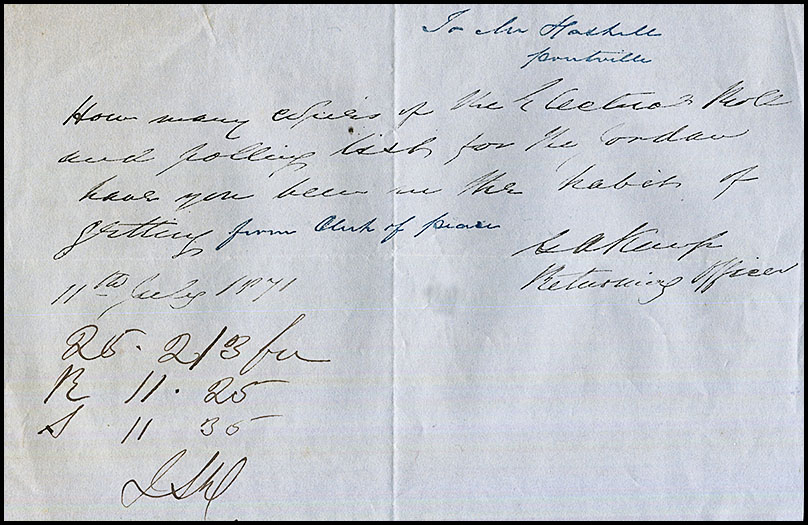 To Mr Haskell
pontville
How many copies of the Electoral Roll
and polling lists for the Jordan
have you been in the habit of
getting from Clerk of peace
Returning Officer
11th July 1871
25. 2/3
R 11. 25
S 11 35